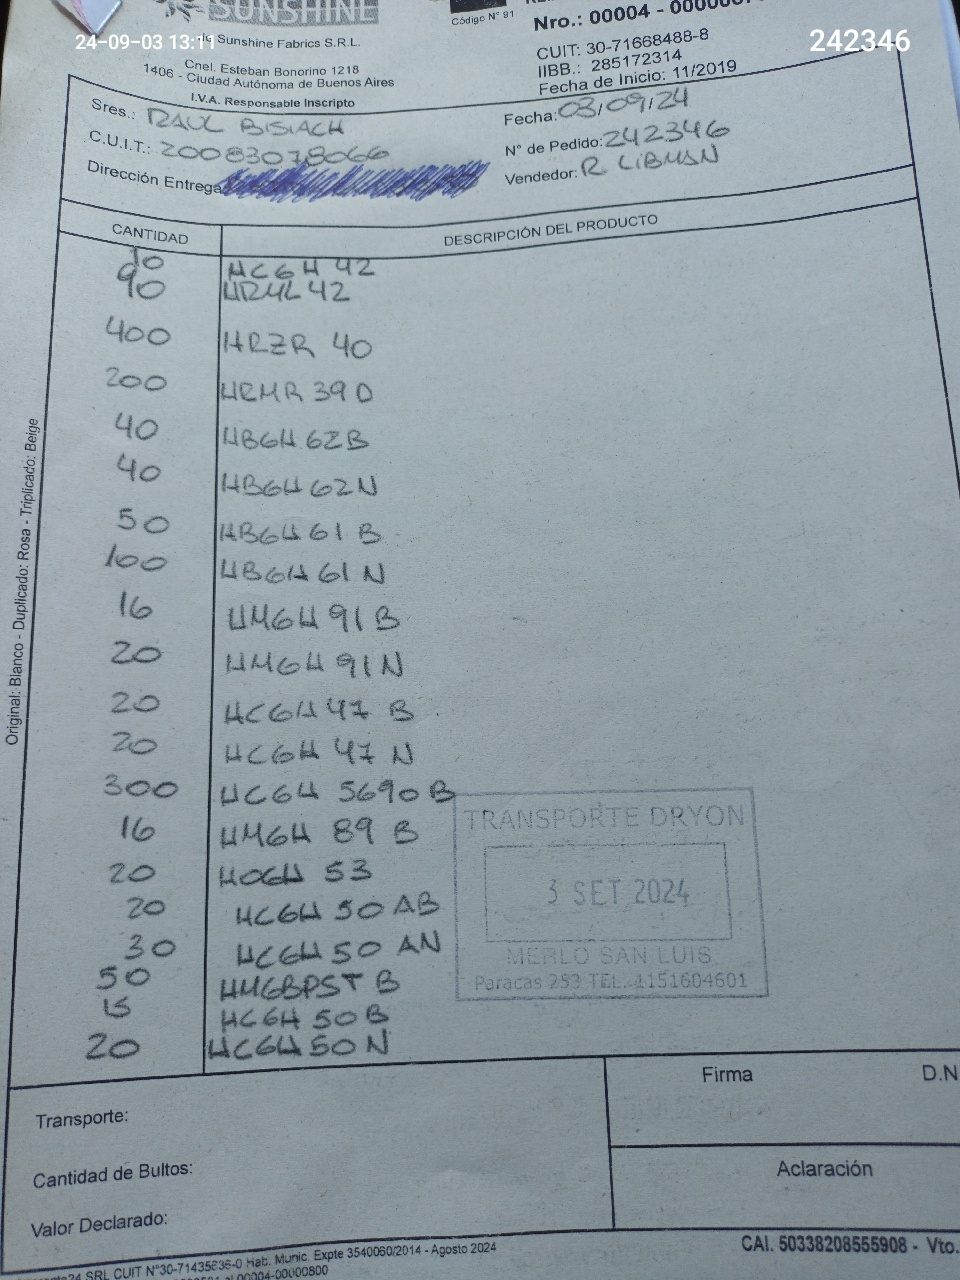 SUNSHINE
Código N° 91
Nro.: 00004 -
24-09-03 13:11
242346
Sunshine Fabrics S.R.L.
Cnel. Esteban Bonorino 1218
1406 - Ciudad Autónoma de Buenos Aires
I.V.A. Responsable Inscripto
CUIT: 30-71668488-8
IIBB.: 285172314
Fecha de Inicio: 11/2019
Sres.: RAUL BISIACH
Fecha: 03/09/24
C.U.I.T.: 20083078066
N° de Pedido: 242346
Dirección Entrega
Vendedor: R. LIBMAN
CANTIDAD DESCRIPCIÓN DEL PRODUCTO
10 HCGH 42
90 HRYL 42
400 HRZR 40
200 HRMR 39 D
40 HBGH 62B
40 HBGH 62N
50 HBGH 61 B
100 HBGH 61 N
16 HMGH 91 B
20 HMGH 91 N
20 HCGH 47 B
20 HCGH 47 N
300 HCGH 5690 B
16 HMGH 89 B
20 HOGH 53
20 HCGH 50 AB
30 HCGH 50 AN
50 HMGBPST B
15 HCGH 50 B
20 HCGH 50 N
TRANSPORTE DRYON
3 SET 2024
MERLO SAN LUIS
Paracas 253 TEL. 1151604601
Original: Blanco - Duplicado: Rosa - Triplicado: Beige
Transporte:
Cantidad de Bultos:
Valor Declarado:
Firma
D.N
Aclaración
SRL CUIT N°30-71435636-0 Hab. Munic. Expte 3540060/2014 - Agosto 2024
00004-00000800
CAI. 50338208555908 - Vto.